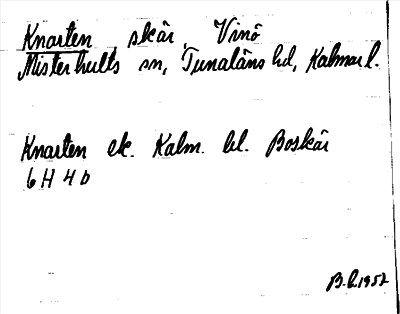 Knarten, skär, Vinö
Misterhults sn, Tunaläns hd, Kalmar l.
Knarten ek. Kalm. bl. Boskär
6 H 4 b
B.L. 1952